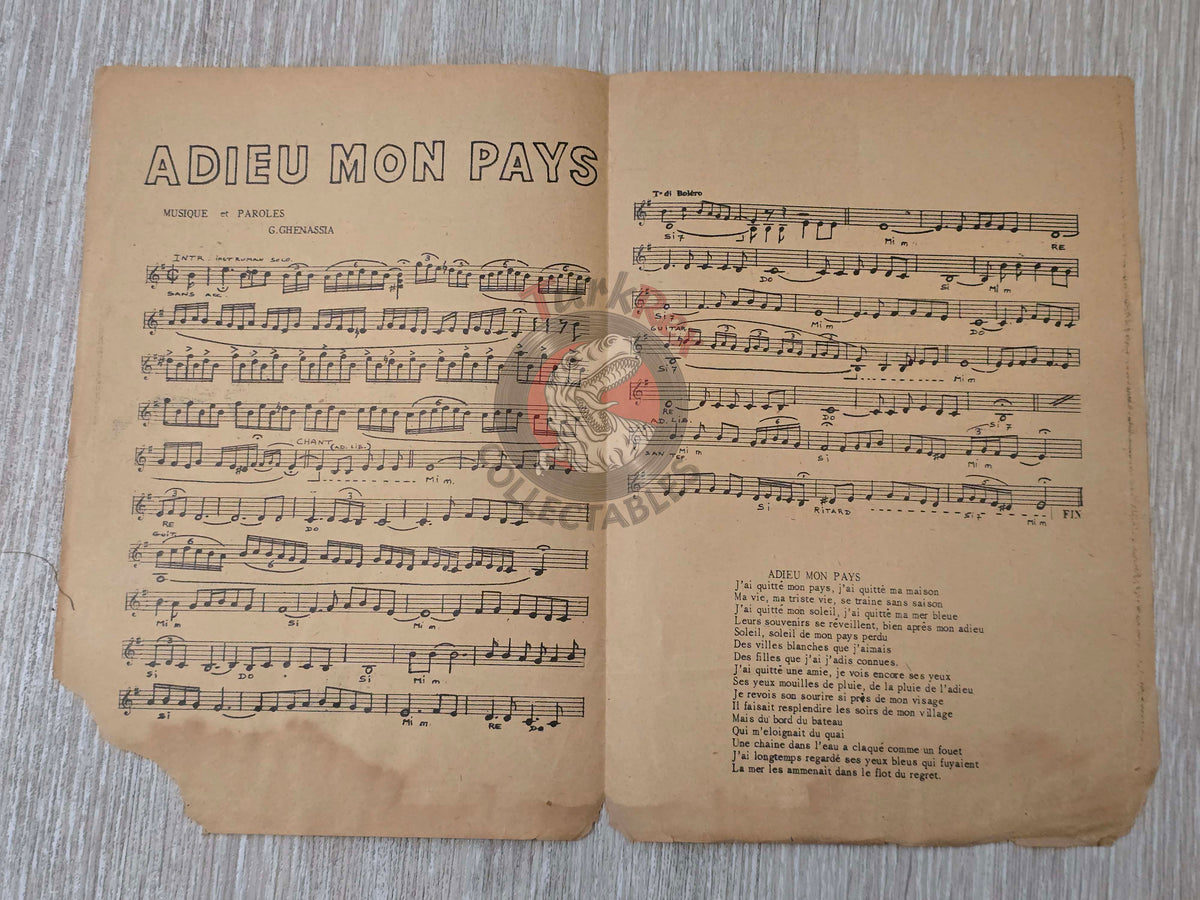 ADIEU MON PAYS
MUSIQUE et PAROLES
G.GHENASSIA
INTR. INSTRUMAN SOLO.
SANS ACC.
CHANT
(AD. LIB.)
Mi m.
RE
DO
GUIT.
Mi m
Si
Mi m
Si
DO
Si
Mi m
Si
Mi m
RE
DO
T° di Boléro
Si 7
Mi m
RE
DO
Si
Mi m
Si 7
Mi m
DO
GUITAR
Si 7
Mi m
RE
DO
Si 7
AD. LIB.
Mi m
Si
Mi m
Si
RITARD
Si 7
Mi m
FIN
ADIEU MON PAYS
J'ai quitté mon pays, j'ai quitté ma maison
Ma vie, ma triste vie, se traine sans saison
J'ai quitté mon soleil, j'ai quitté ma mer bleue
Leurs souvenirs se réveillent, bien aprés mon adieu
Soleil, soleil de mon pays perdu
Des villes blanches que j'aimais
Des filles que j'ai j'adis connues.
J'ai quitté une amie, je vois encore ses yeux
Ses yeux mouilles de pluie, de la pluie de l'adieu
Je revois son sourire si près de mon visage
Il faisait resplendire les soirs de mon village
Mais du bord du bateau
Qui m'eloignait du quai
Une chaine dans l'eau a claqué comme un fouet
J'ai longtemps regardé ses yeux bleus qui fuyaient
La mer les ammenait dans le flot du regret.
TurkRex
COLLECTABLES